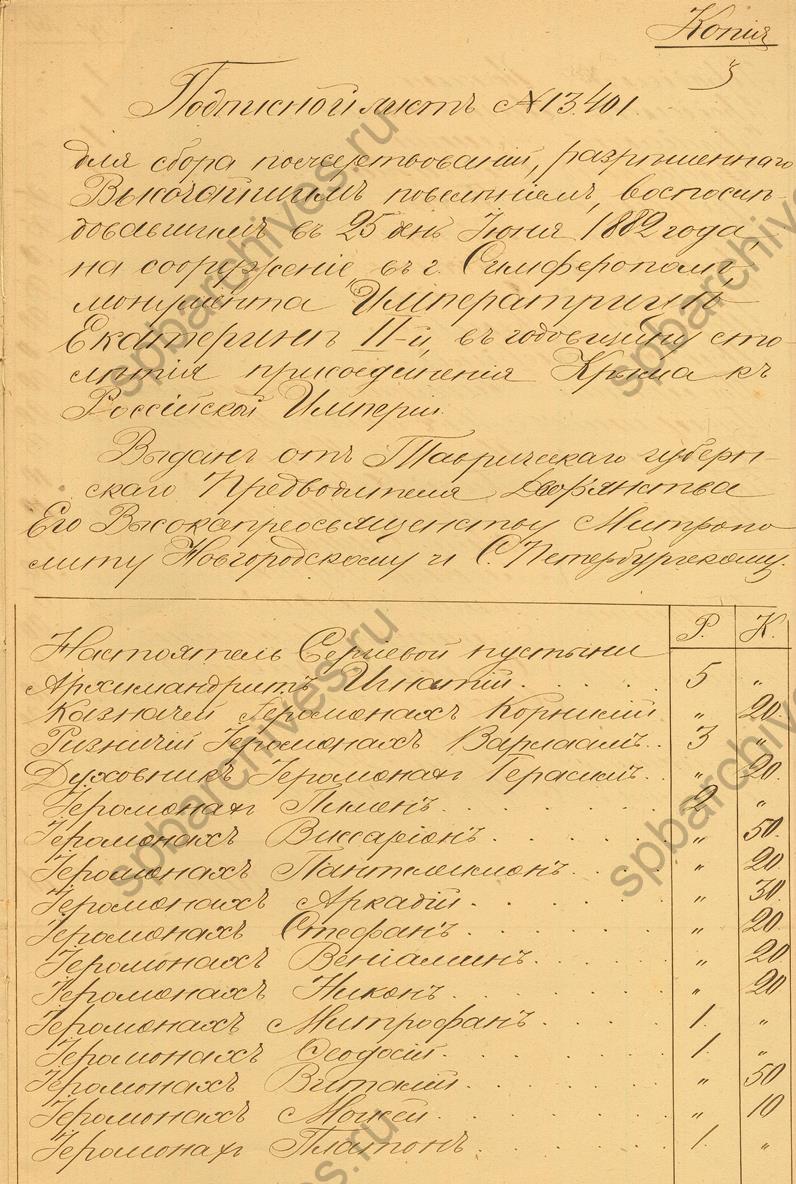 Копія
3
Подписной листъ №13.401.
для сбора пожертвованій, разрѣшеннаго
Высочайшимъ повелѣніемъ, воспослѣ-
довавшимъ въ 25 день Іюня 1882 года,
на сооруженіе въ г. Симферополѣ
монумента Императрицѣ
Екатеринѣ II-й, въ годовщину сто-
лѣтія присоединенія Крыма къ
Россійской Имперіи.
Выданъ отъ Таврическаго губерн-
скаго Предводителя Дворянства
Его Высокопреосвященству Митропо-
литу Новгородскому и С.Петербургскому.
Р. К.
Настоятель Сергіевой пустыни
Архимандритъ Игнатій . . . . . 5 „
Казначей Іеромонахъ Корнилій „ 20
Ризничій Іеромонахъ Варлаамъ . . 3 „
Духовникъ Іеромонах Герасимъ . . „ 20
Іеромонах Пименъ . . . . . . . 2 „
Іеромонахъ Виссаріонъ . . . . . „ 50
Іеромонахъ Пантелеимонъ . . . „ 20
Іеромонахъ Аркадій . . . . . . „ 30
Іеромонахъ Стефанъ . . . . . . „ 20
Іеромонахъ Веніаминъ . . . . „ 20
Іеромонахъ Никонъ . . . . . . „ 20
Іеромонахъ Митрофанъ . . . . 1. „
Іеромонахъ Ѳеодосій . . . . . . 1. „
Іеромонахъ Виталій . . . . . . „ 50
Іеромонахъ Моисей . . . . . . „ 10
Іеромонах Платонъ . . . . . . 1. „
spbarchives.ru
spbarchives.ru
spbarchives.ru
spbarchives.ru